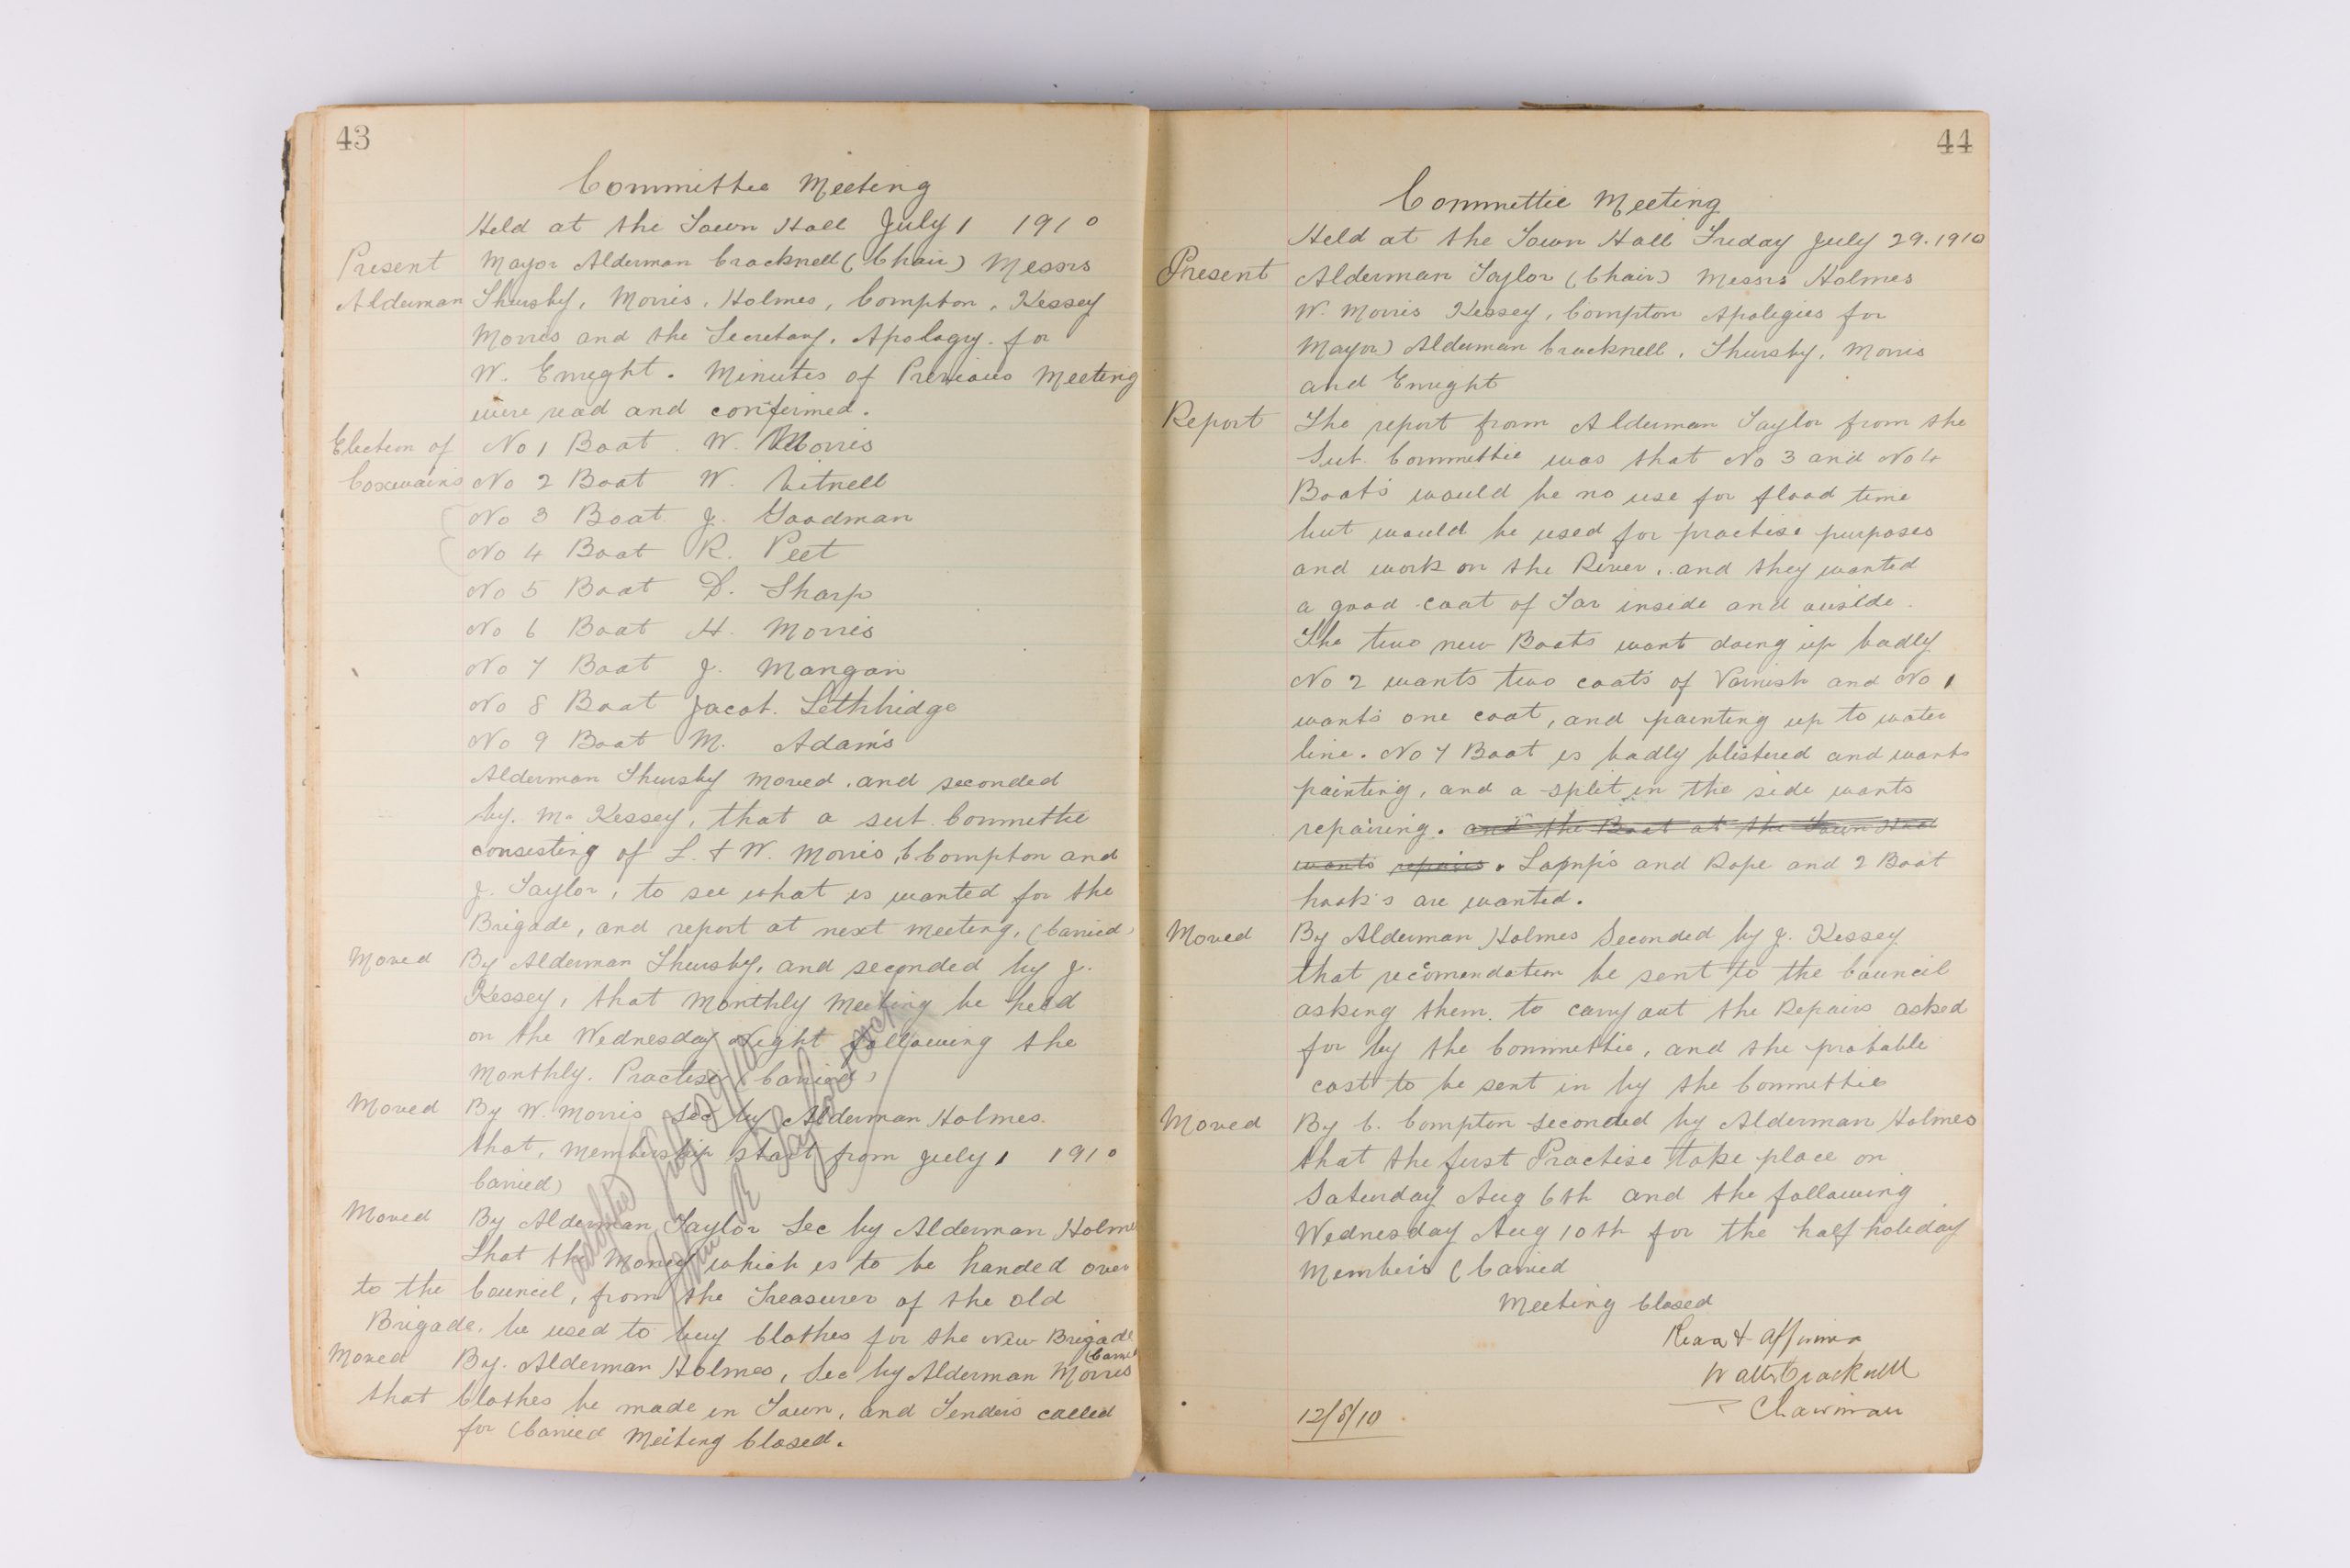 43
Committee Meeting
Held at the Town Hall July 1 1910
Present Mayor Alderman Cracknell (Chair) Messrs
Alderman Thursby, Morris, Holmes, Compton, Kessey
Morris and the Secretary. Apology for
W. Enright. Minutes of Previous Meeting
were read and confirmed.
Election of No 1 Boat W. Morris
Coxswains No 2 Boat W. Witnell
No 3 Boat J. Goodman
No 4 Boat R. Peet
No 5 Boat D. Sharp
No 6 Boat H. Morris
No 7 Boat J. Mangan
No 8 Boat Jacob. Lethbidge
No 9 Boat M. Adams
Alderman Thursby moved, and seconded
by. Mr Kessey, that a sub Committie
consisting of L. & W. Morris, C Compton and
J. Taylor, to see what is wanted for the
Brigade, and report at next meeting, (Carried)
Moved By Alderman Thursby, and seconded by J.
Kessey, that monthly meeting be held
on the Wednesday Night following the
Monthly. Practise (Carried)
Moved By W. Morris Sec by Alderman Holmes.
that, membership start from July 1 1910
Carried)
Moved By Alderman Taylor Sec by Alderman Holmes
That the Money which is to be handed over
to the Council, from the Treasurer of the old
Brigade. be used to buy Clothes for the New Brigade
(Carried
Moved By. Alderman Holmes, Sec by Alderman Morris
that Clothes be made in Town, and Tenders called
for (Carried Meeting Closed.
adopted July 29/10
44
Committie Meeting
Held at the Town Hall Friday July 29. 1910
Present Alderman Taylor (Chair) Messrs Holmes
W. Morris Kessey, Compton Apoligies for
Mayor) Alderman Cracknell, Thursby, Morris
and Enright
Report The report from Alderman Taylor from the
Sub. Committie was that No 3 and No 4
Boats would be no use for flood time
but would be used for practise purposes
and work on the River, and they wanted
a good coat of Tar inside and ouside.
The two new Boats want doing up badly
No 2 wants two coats of Varnish and No 1
wants one coat, and painting up to water
line. No 7 Boat is badly blistered and wants
painting, and a split in the side wants
repairing. and the Boat at the Town Hall
wants repairs. Lamps and Rope and 2 Boat
hooks are wanted.
Moved By Alderman Holmes Seconded by J. Kessey
that recomendation be sent to the Council
asking them. to carry out the Repairs asked
for by the Committie, and the probable
cost to be sent in by the Committie
Moved By C. Compton seconded by Alderman Holmes
that the first Practise take place on
Saturday Aug 6th and the following
Wednesday Aug 10th for the half holiday
Members (Carried
Meeting Closed
Read & Affirmed
Walter Cracknell
Chairman
12/8/10